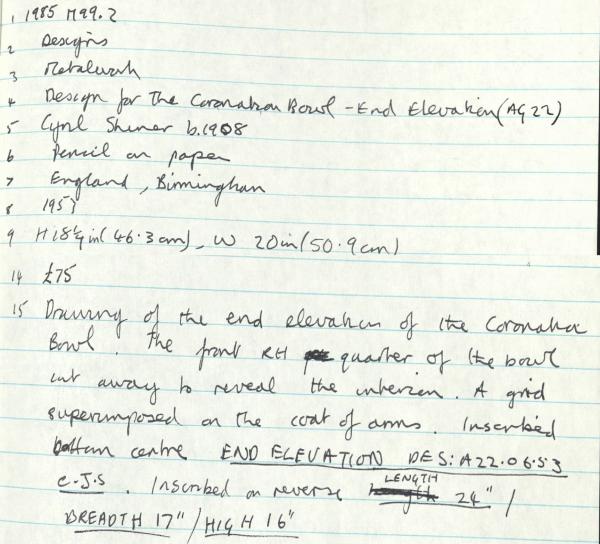 1 1985 M99.2
2 Designs
3 Metalwork
4 Design for The Coronation Bowl - End Elevation (AG 22)
5 Cyril Shiner b.1908
6 Pencil on paper
7 England, Birmingham
8 1953
9 H 18¼in (46.3cm), W 20in (50.9cm)
14 £75
15 Drawing of the end elevation of the Coronation
Bowl. The front RH quarter of the bowl
cut away to reveal the interior. A grid
superimposed on the coat of arms. Inscribed
bottom centre END ELEVATION DES: A22.06.53
C.J.S. Inscribed on reverse LENGTH 24" /
BREADTH 17" / HIGH 16"